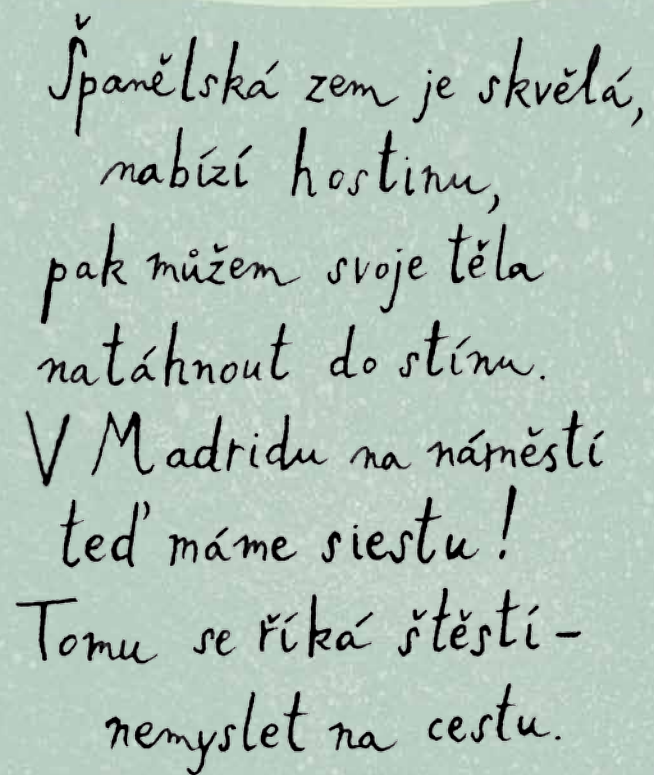 Španělská zem je skvělá,
nabízí hostinu,
pak můžem svoje těla
natáhnout do stínu.
V Madridu na náměstí
teď máme siestu!
Tomu se říká štěstí –
nemyslet na cestu.